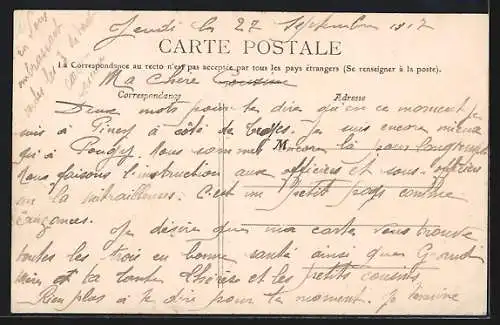 Jeudi le 27 Septembre 1917
CARTE POSTALE
La Correspondance au recto n'est pas acceptée par tous les pays étrangers (Se renseigner à la poste).
Ma chère Cousine
Correspondance Adresse
Deux mots pour te dire qu'en ce moment je
suis à Piney à côté de Troyes. Je suis encore mieux
qu'à Pougy. Nous sommes encore là pour longtemps
Nous faisons l'instruction aux officiers et sous-officiers
sur la mitrailleuse. C'est un petit pays comme
Je désire que ma carte vous trouve
toutes les trois en bonne santé ainsi que Grand
mère et ta tante Thérèse et les petits cousins.
Rien plus à te dire pour le moment. Je termine
en vous
embrassant
toutes les 3